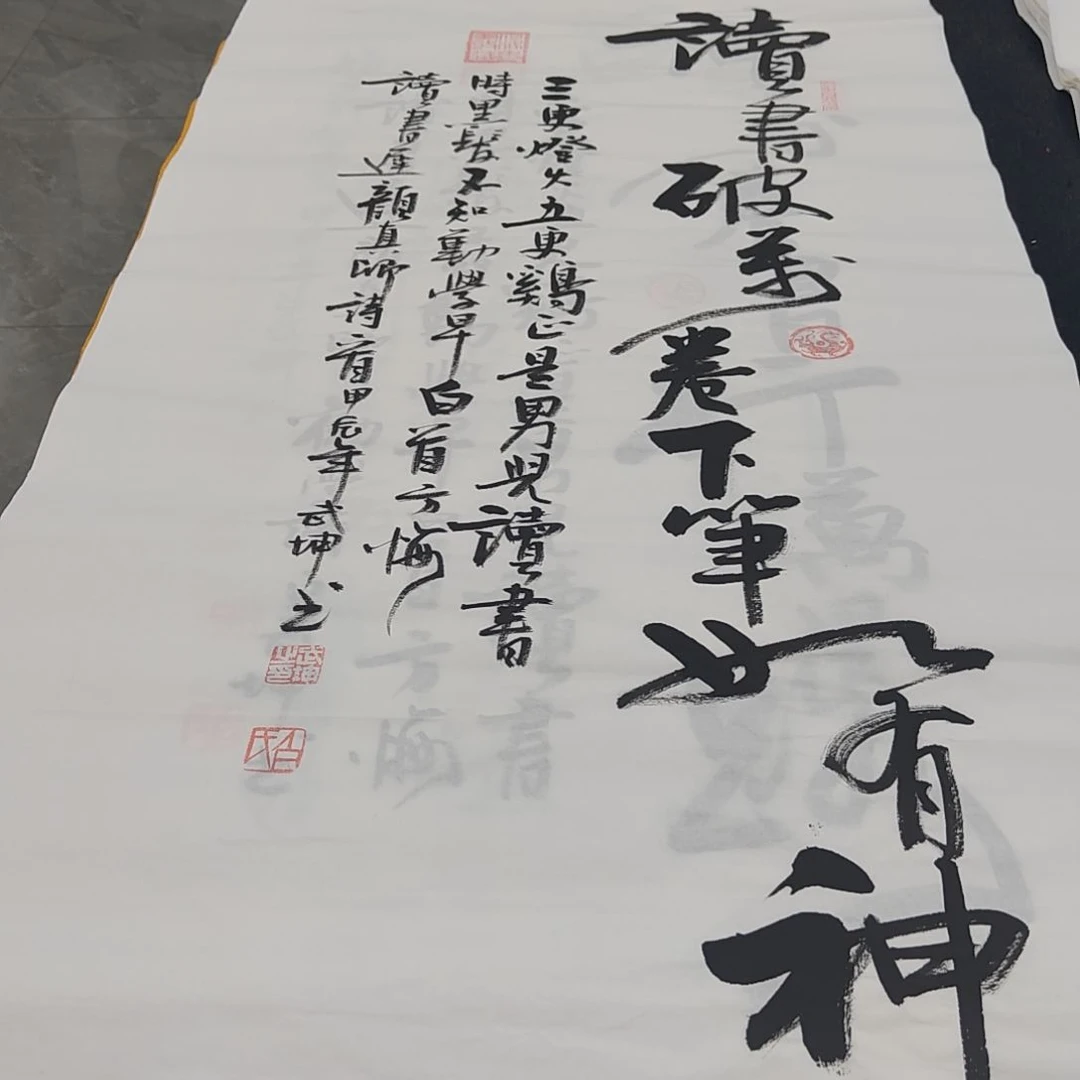 讀書破萬卷下筆如有神
三更燈火五更鷄正是男兒讀書
時黑髮不知勤學早白首方悔
讀書遲顏真卿詩一首甲辰年武坤书
武坤之印